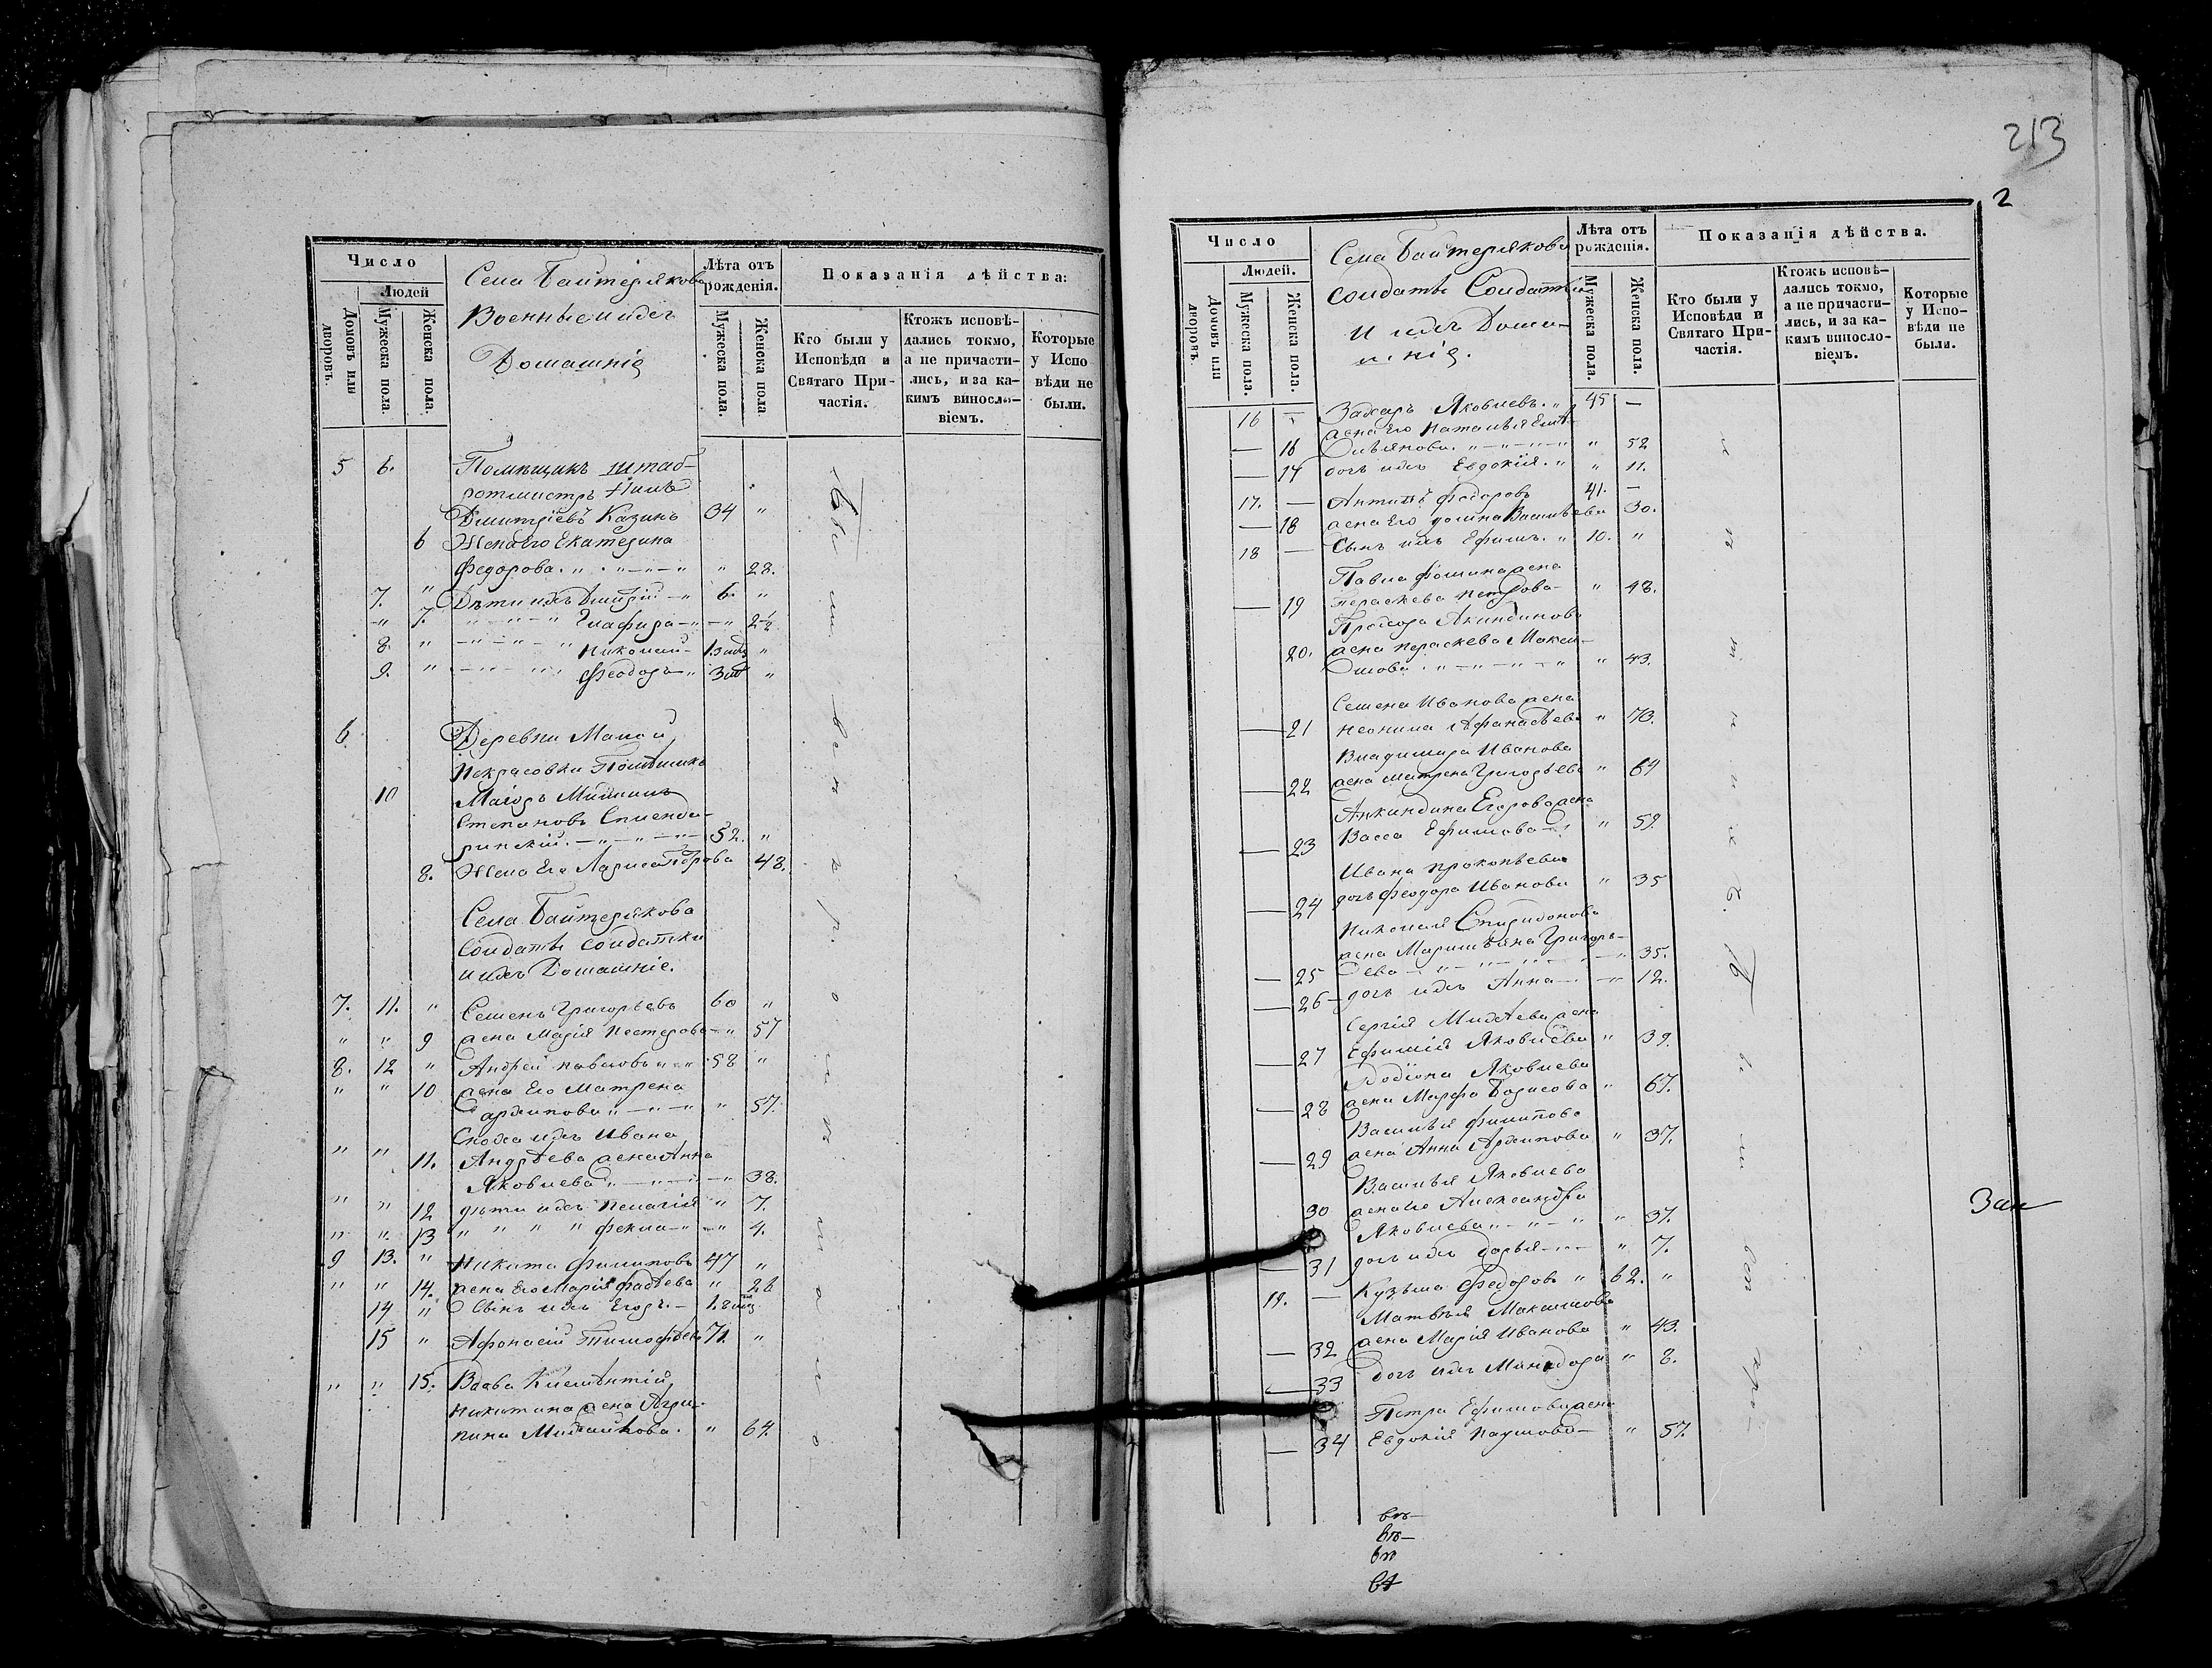 Число
Людей
Домовъ или дворовъ.
Мужеска пола.
Женска пола.
Села Байтерякова
Военные и ихъ
Домашніе
Лѣта отъ рожденія.
Мужеска пола.
Женска пола
Показанія дѣйства:
Кто были у Исповѣди и Святаго Причастія.
Ктожъ исповѣдались токмо, а не причастились, и за какимъ винословіемъ.
Которые у Исповѣди не были.
5 6. Помѣщикъ штаб-
ротмистръ
Дмитріевъ Казинъ 34 "
6 Жена Его Екатерина
Федорова. " " " 28.
7. " Дѣти ихъ Дмитрій " 6. "
" 7. " " " Глафира " " 2½
8. " " " " Николай 1.
9. " " " " Феодоръ " 3 "
6. Деревни Малой
Некрасовки Помѣщикъ
10 Маіоръ
Степановъ
" " " 52. "
8. Жена Его Лариса Петрова 48.
Села Байтерякова
Солдаты солдатки
и ихъ Домашніе.
7. 11. " Семенъ Григорьевъ 60 "
" " 9 жена Марія Нестерова " 57
8. 12 " Андрей Павловъ " " 58 "
" " 10 жена Его Матрена
Архипова " " " 57.
Сноха ихъ Ивана
" " 11. Андрѣева жена Анна
Яковлева " " " 38.
" " 12 дѣти ихъ Пелагія " 7.
" " 13 " " " " Фекла " " 4.
9 13. " Никита Филиповъ 47 "
" " 14. жена Его Марія Фадѣева " 26
14 " Сынъ ихъ Егоръ. 1.
15 " Афонасій Тимофѣевъ 71. "
" " 15. Вдова
Никитина жена Агри-
пина Михайлова. " 64.
213
2
Число
Людей.
Домовъ или дворовъ.
Мужеска пола.
Женска пола.
Села Байтерякова
Солдаты Солдатки
и ихъ Дома-
шніе.
Лѣта отъ рожденія.
Мужеска пола.
Женска пола.
Показанія дѣйства.
Кто были у Исповѣди и Святаго Причастія.
Ктожъ исповѣдались токмо, а не причастились, и за какимъ винословіемъ.
Которые у Исповѣди не были.
16 — Захаръ Яковлевъ. " 45 —
жена Его Наталья Емѣ-
— 16 льянова. " " " " 52
— 17 дочь ихъ Евдокія. " " 11.
17. — Антипъ Федоровъ 41. —
— 18 жена Его Домна Васильева 30.
18 — Сынъ ихъ Ефимъ. " 10. "
Павла Фомина жена
— 19 Пераскева Петрова " 48.
Прохора Акиндинова
20. жена Пераскева Макси-
мова " " " " 43.
Семена Иванова жена
— 21 Неонила Афанасьева " 70.
Владимира Иванова
— 22 жена Матрена Григорьева " 64
Анкиндина Егорова жена
— 23 Васса Ефимова " 59.
Ивана Прокопьева
— 24 дочь Феодора Иванова " 35
Николая Спиридонова
жена Маримьяна Григорь-
— 25 ева " " " " 35.
— 26 дочь ихъ Анна " 12.
Сергія Михѣева жена
— 27 Ефимія Яковлева " 39.
Родіона Яковлева
— 28 жена Марфа Борисова " 67.
Василья Филипова
— 29 жена Анна Архипова " 37.
Василья Яковлева
30 жена Его Александра
Яковлева " " " 37.
— 31 дочь ихъ Дарья " 7.
19. — Кузьма Федоровъ " 62. "
Матвѣя Максимова
— 32 жена Марія Иванова " 43.
— 33 дочь ихъ Минодора " 8.
Петра Ефимова жена
— 34 Евдокія Наумова " 57.